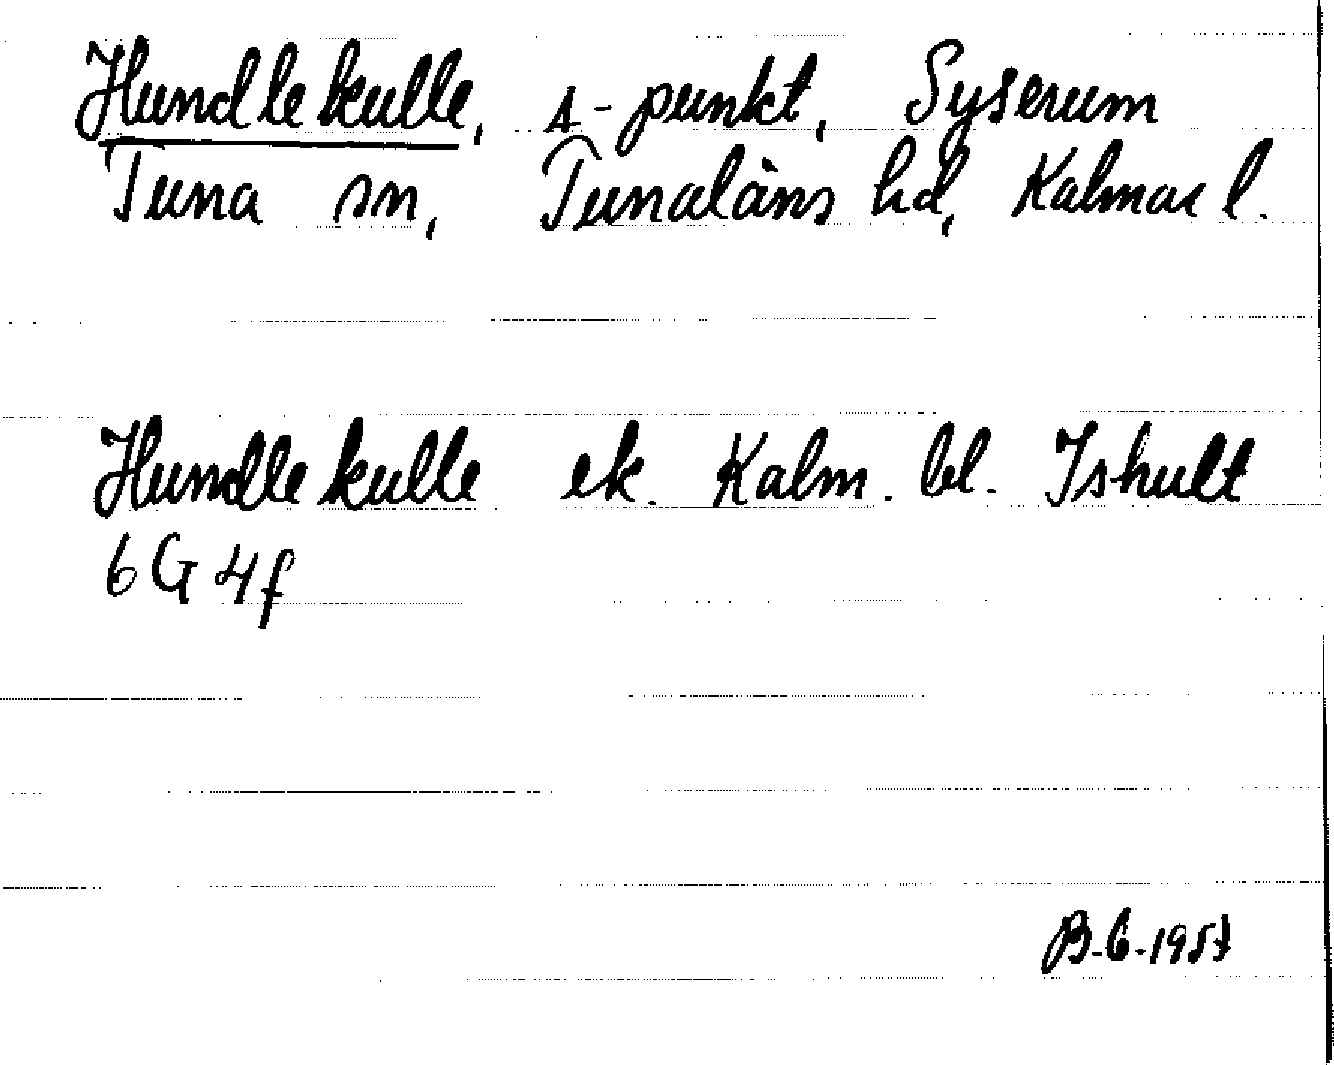 Hundlekulle, s-punkt, Syserum
Tuna sn, Tunaläns hd, Kalmar l.
Hundlekulle ek. Kalm. bl. Ishult
6G4f
B-6-1957